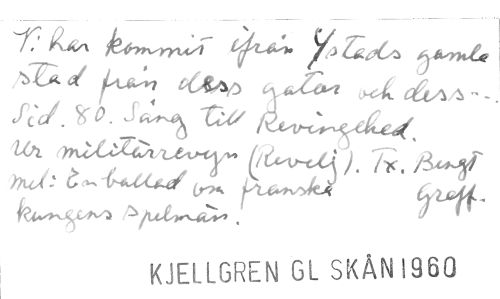 Vi har kommit ifrån Ystads gamla
stad från dess gator och dess...
Sid. 80. Sång till Revingehed.
Ur militärrevyn (Revelj). Tx. Bengt
mel: En ballad om franska Greff.
kungens spelmän.
KJELLGREN GL SKÅN1960